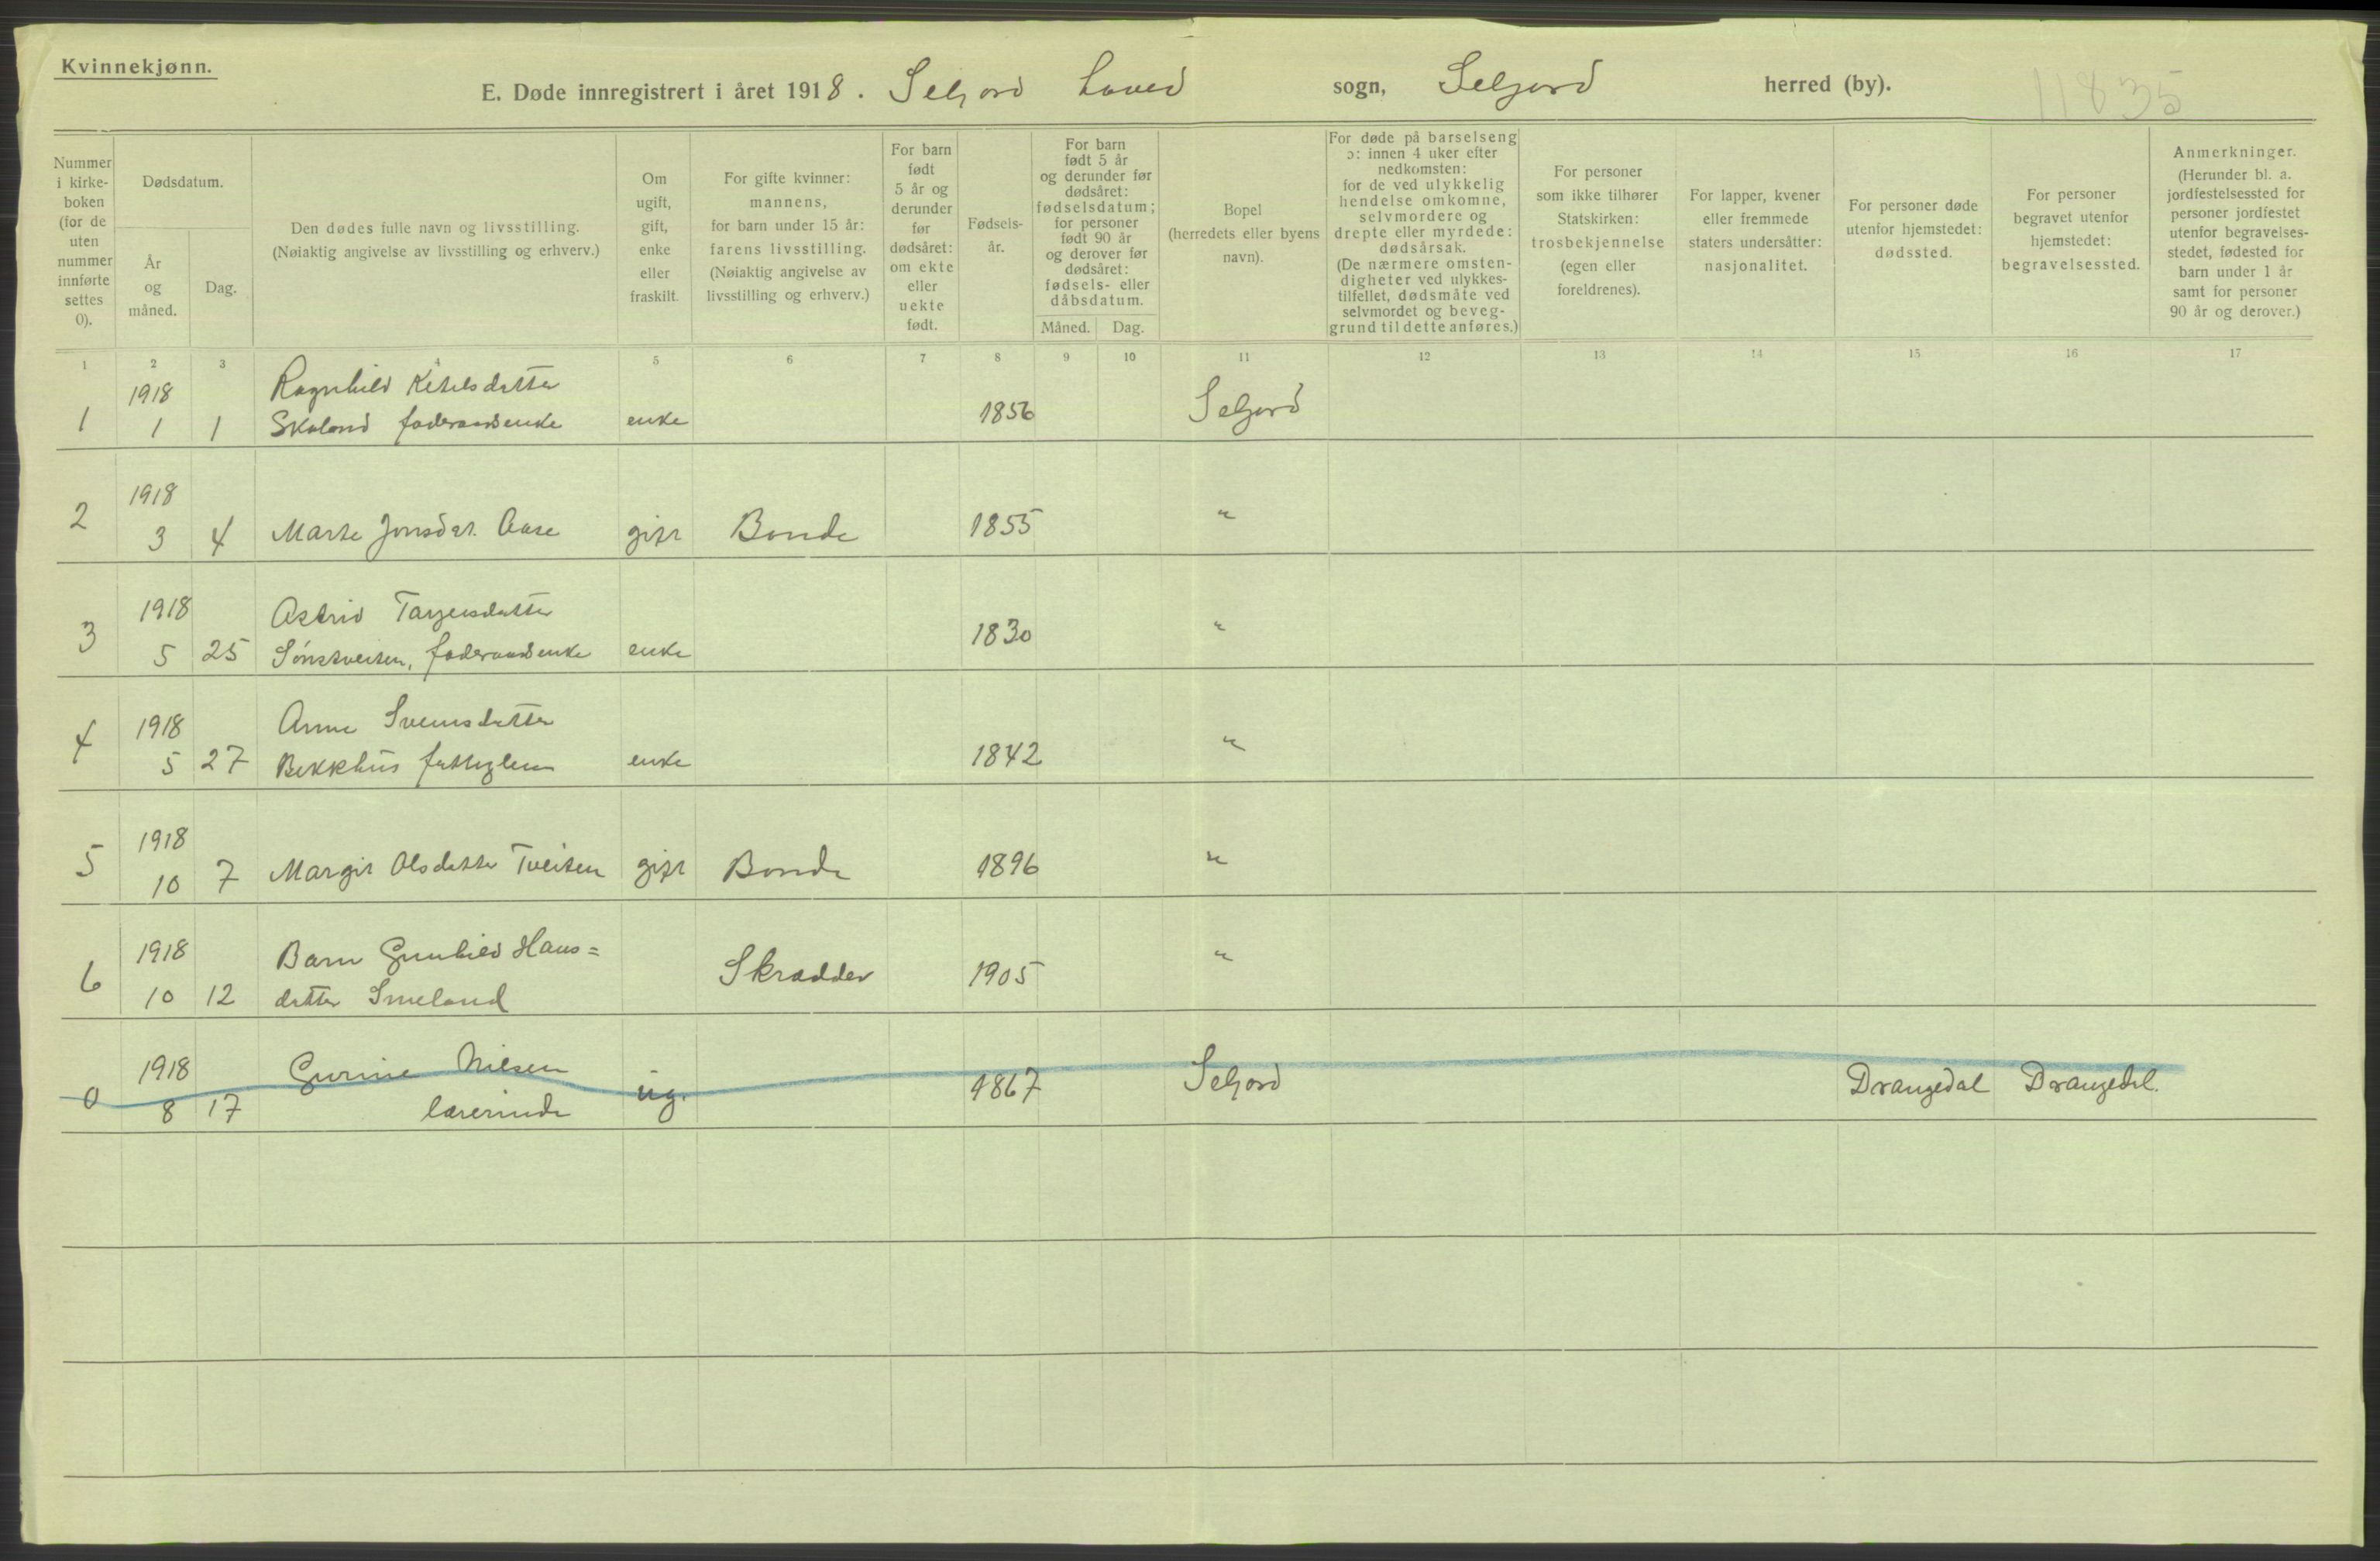 Kvinnekjønn.
E. Døde innregistrert i året 1918. Seljord hoved sogn, Seljord herred (by).
11835
Nummer i kirke- boken (for de uten nummer innførte settes 0).
Dødsdatum.
År og måned.
Dag.
Den dødes fulle navn og livsstilling.
(Nøiaktig angivelse av livsstilling og erhverv.)
Om ugift, gift, enke eller fraskilt.
For gifte kvinner: mannens, for barn under 15 år: farens livsstilling. (Nøiaktig angivelse av livsstilling og erhverv.)
For barn født 5 år og derunder før dødsåret: om ekte eller uekte født.
Fødsels- år.
For barn født 5 år og derunder før dødsåret: fødselsdatum; for personer født 90 år og derover før dødsåret: fødsels- eller dåbsdatum.
Måned. Dag.
Bopel (herredets eller byens navn).
For døde på barselseng ɔ: innen 4 uker efter nedkomsten: for de ved ulykkelig hendelse omkomne, selvmordere og drepte eller myrdede: dødsårsak. (De nærmere omsten- digheter ved ulykkes- tilfellet, dødsmåte ved selvmordet og beveg- grund til dette anføres.)
For personer som ikke tilhører Statskirken: trosbekjennelse (egen eller foreldrenes).
For lapper, kvener eller fremmede staters undersåtter: nasjonalitet.
For personer døde utenfor hjemstedet: dødssted.
For personer begravet utenfor hjemstedet: begravelsessted.
Anmerkninger. (Herunder bl. a. jordfestelsessted for personer jordfestet utenfor begravelses- stedet, fødested for barn under 1 år samt for personer 90 år og derover.)
1 2 3 4 5 6 7 8 9 10 11 12 13 14 15 16 17
1918 Ragnhild Ketelsdatter
1 1 1 Skoland føderaadsenke enke 1856 Seljord
1918
2 3 4 Marte Jonsdat. Aase gift Bonde 1855 "
1918 Astrid Targeirsdatter
3 5 25 Sönstveiten, føderaadsenke enke 1830 "
1918 Anne Sveinsdatter
4 5 27 Bekkhus fattiglem enke 1842 "
1918
5 10 7 Margit Olsdatter Tveiten gift Bonde 1896 "
1918 Barn Gunhild Hans=
6 10 12 datter Smeland Skrædder 1905 "
1918 Gurine Nilsen
0 8 17 lærerinde ug. 1867 Seljord Drangedal Drangedal.